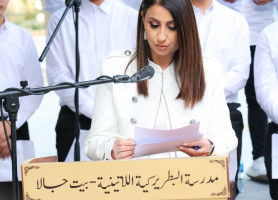 مدرسة البطريركية اللاتينية - بيت جالا